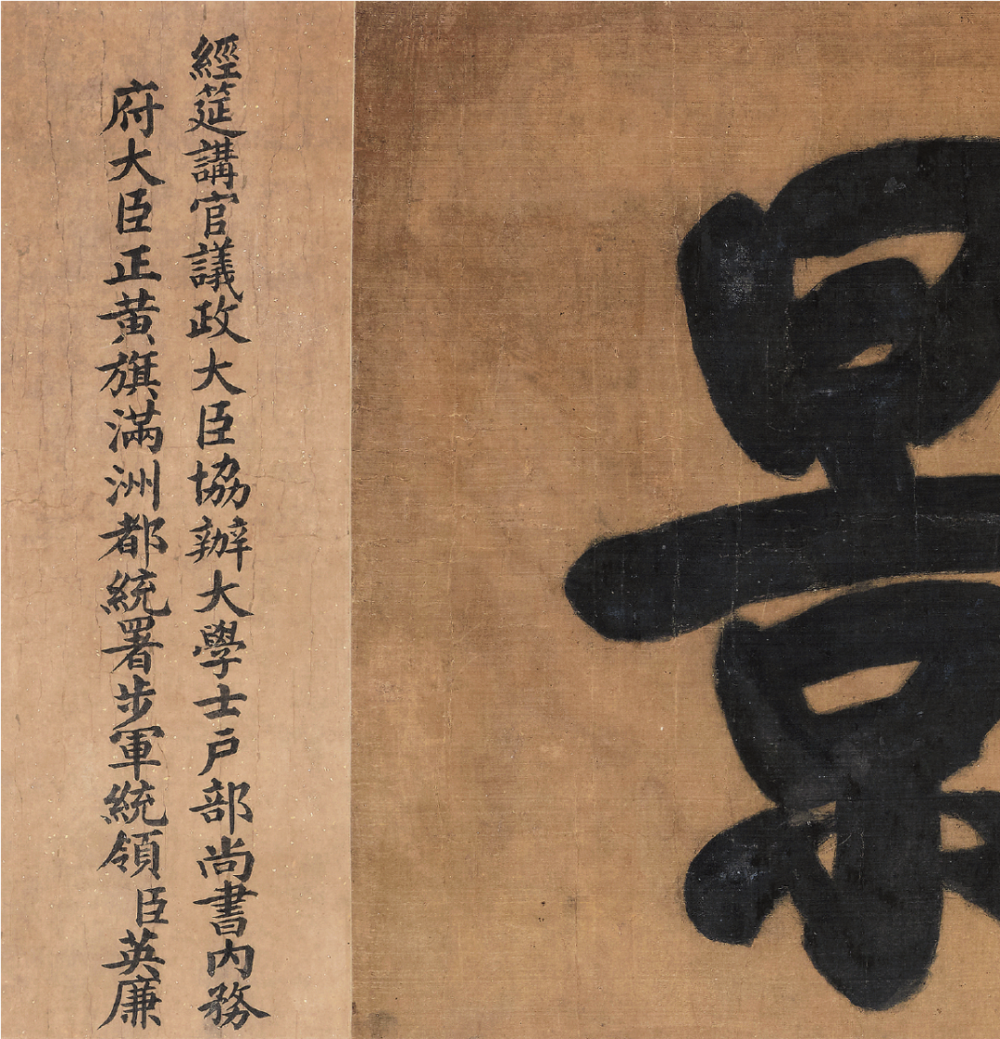 景
經筵講官議政大臣協辦大學士戶部尚書內務
府大臣正黃旗滿洲都統署步軍統領臣英廉